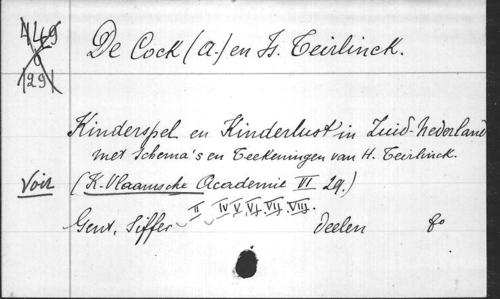 De Cock (A.) en Is. Teirlinck.
Kinderspel en Kinderlust in Zuid-Nederland
met Schema's en Teekeningen van H. Teirlinck.
Voir (K. Vlaamsche Academie VI 29.)
Gent, Siffer II IV V VI VII VIII. deelen 8o